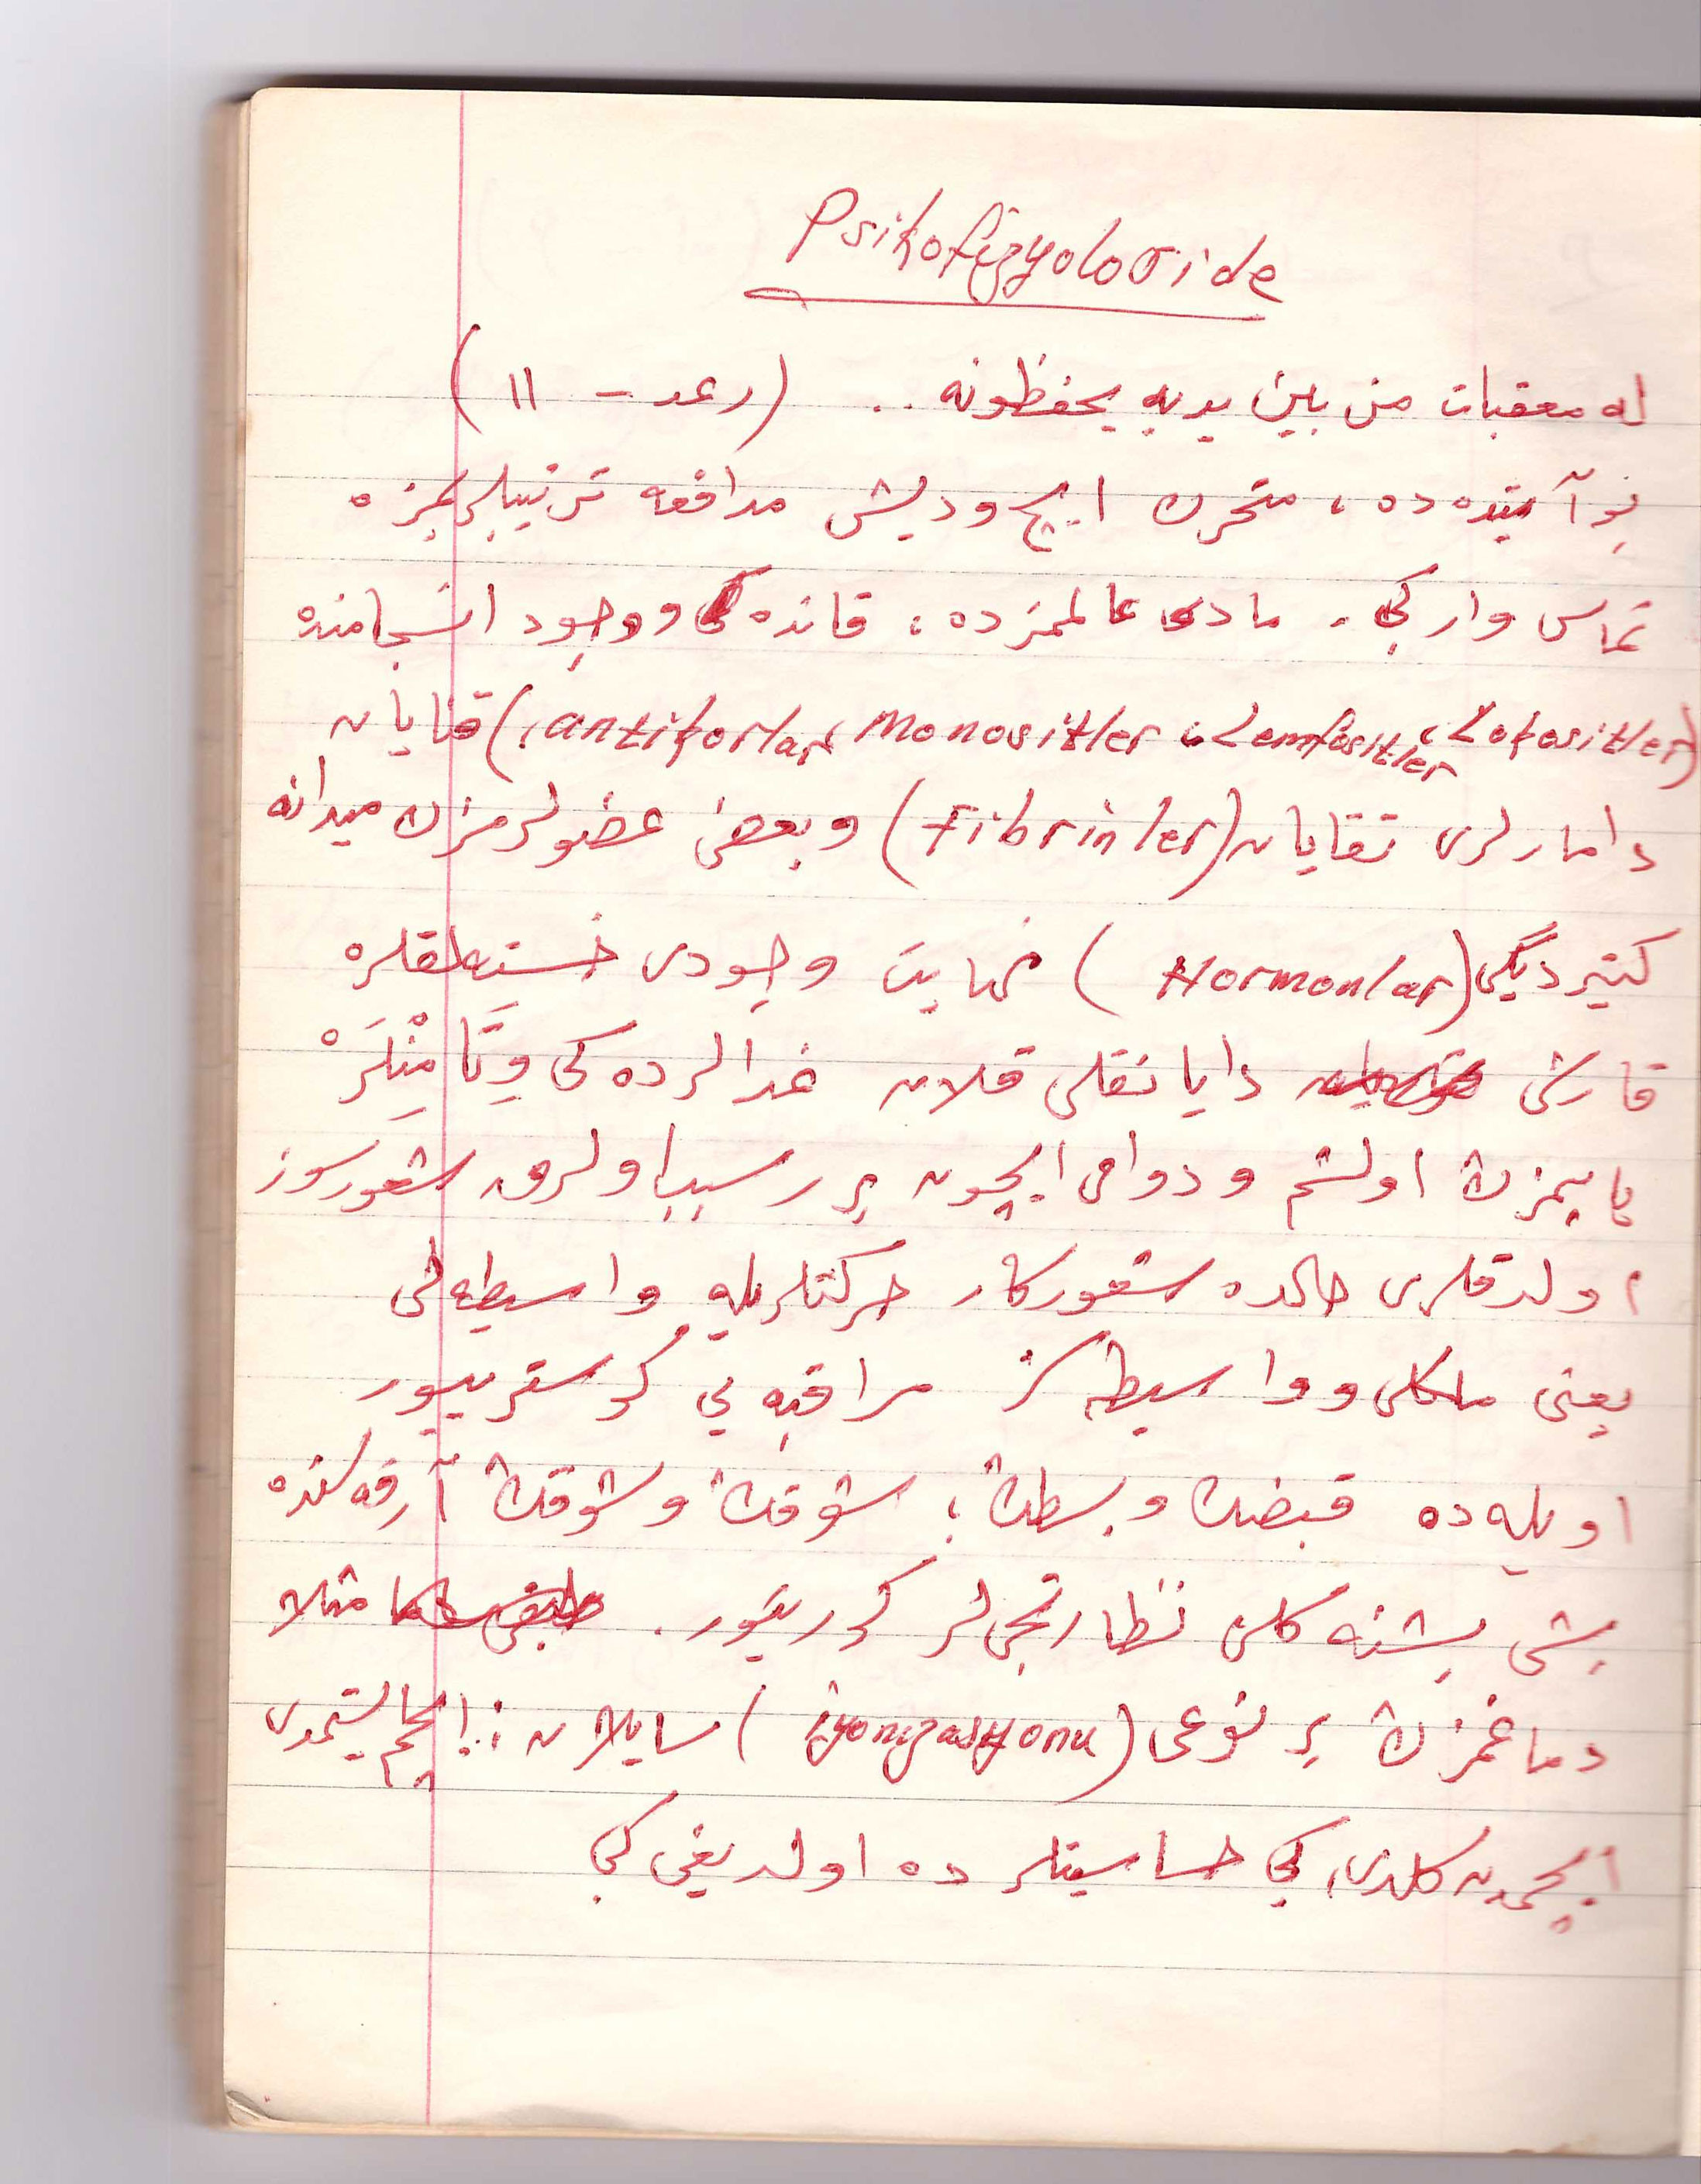 Psikofizyolojide
له معقبات من بين يديه يحفظونه .. (رعد - ١١)
بو آيتده ده ، متحرك ايچ وديش مدافعه ترتيبلريمزه
تماس واركى . مادى عالممزده ، قانده كى و وجود انسجامنده
(Lokositler ، Lemfositler ، Monositler ، antikorlar) قنايان
دامارلرى تقايان (Fibrinler) و بعض عضولرمزك ميدانه
كتيرديگى (Hormonlar) نهايت وجودى خسته لقلره
قارشى دايانقلى قلان غدالرده كى وِتَامِينْلَرْ
ياپيمزك اولشم ودوامى ايچون بر سبب اولرق شعورسوز
اولدقلرى حالده شعوركار حركتلريله واسطه لى
يعنى ملكلى و واسيطه سز مراقبه يى كوستريييور
اويله ده قبضك وبسطك ؛ شوقك وشوقك آرقه سنده
پشى پشنه كلن نظارتجى لر كورينيور . مثلا
دماغمزك بر نوعى (iyonizasyonu) سايلان : ايچم ايستمدى
ايچمدن كلدى، كبى حساسيتلرده اولديغى كبى